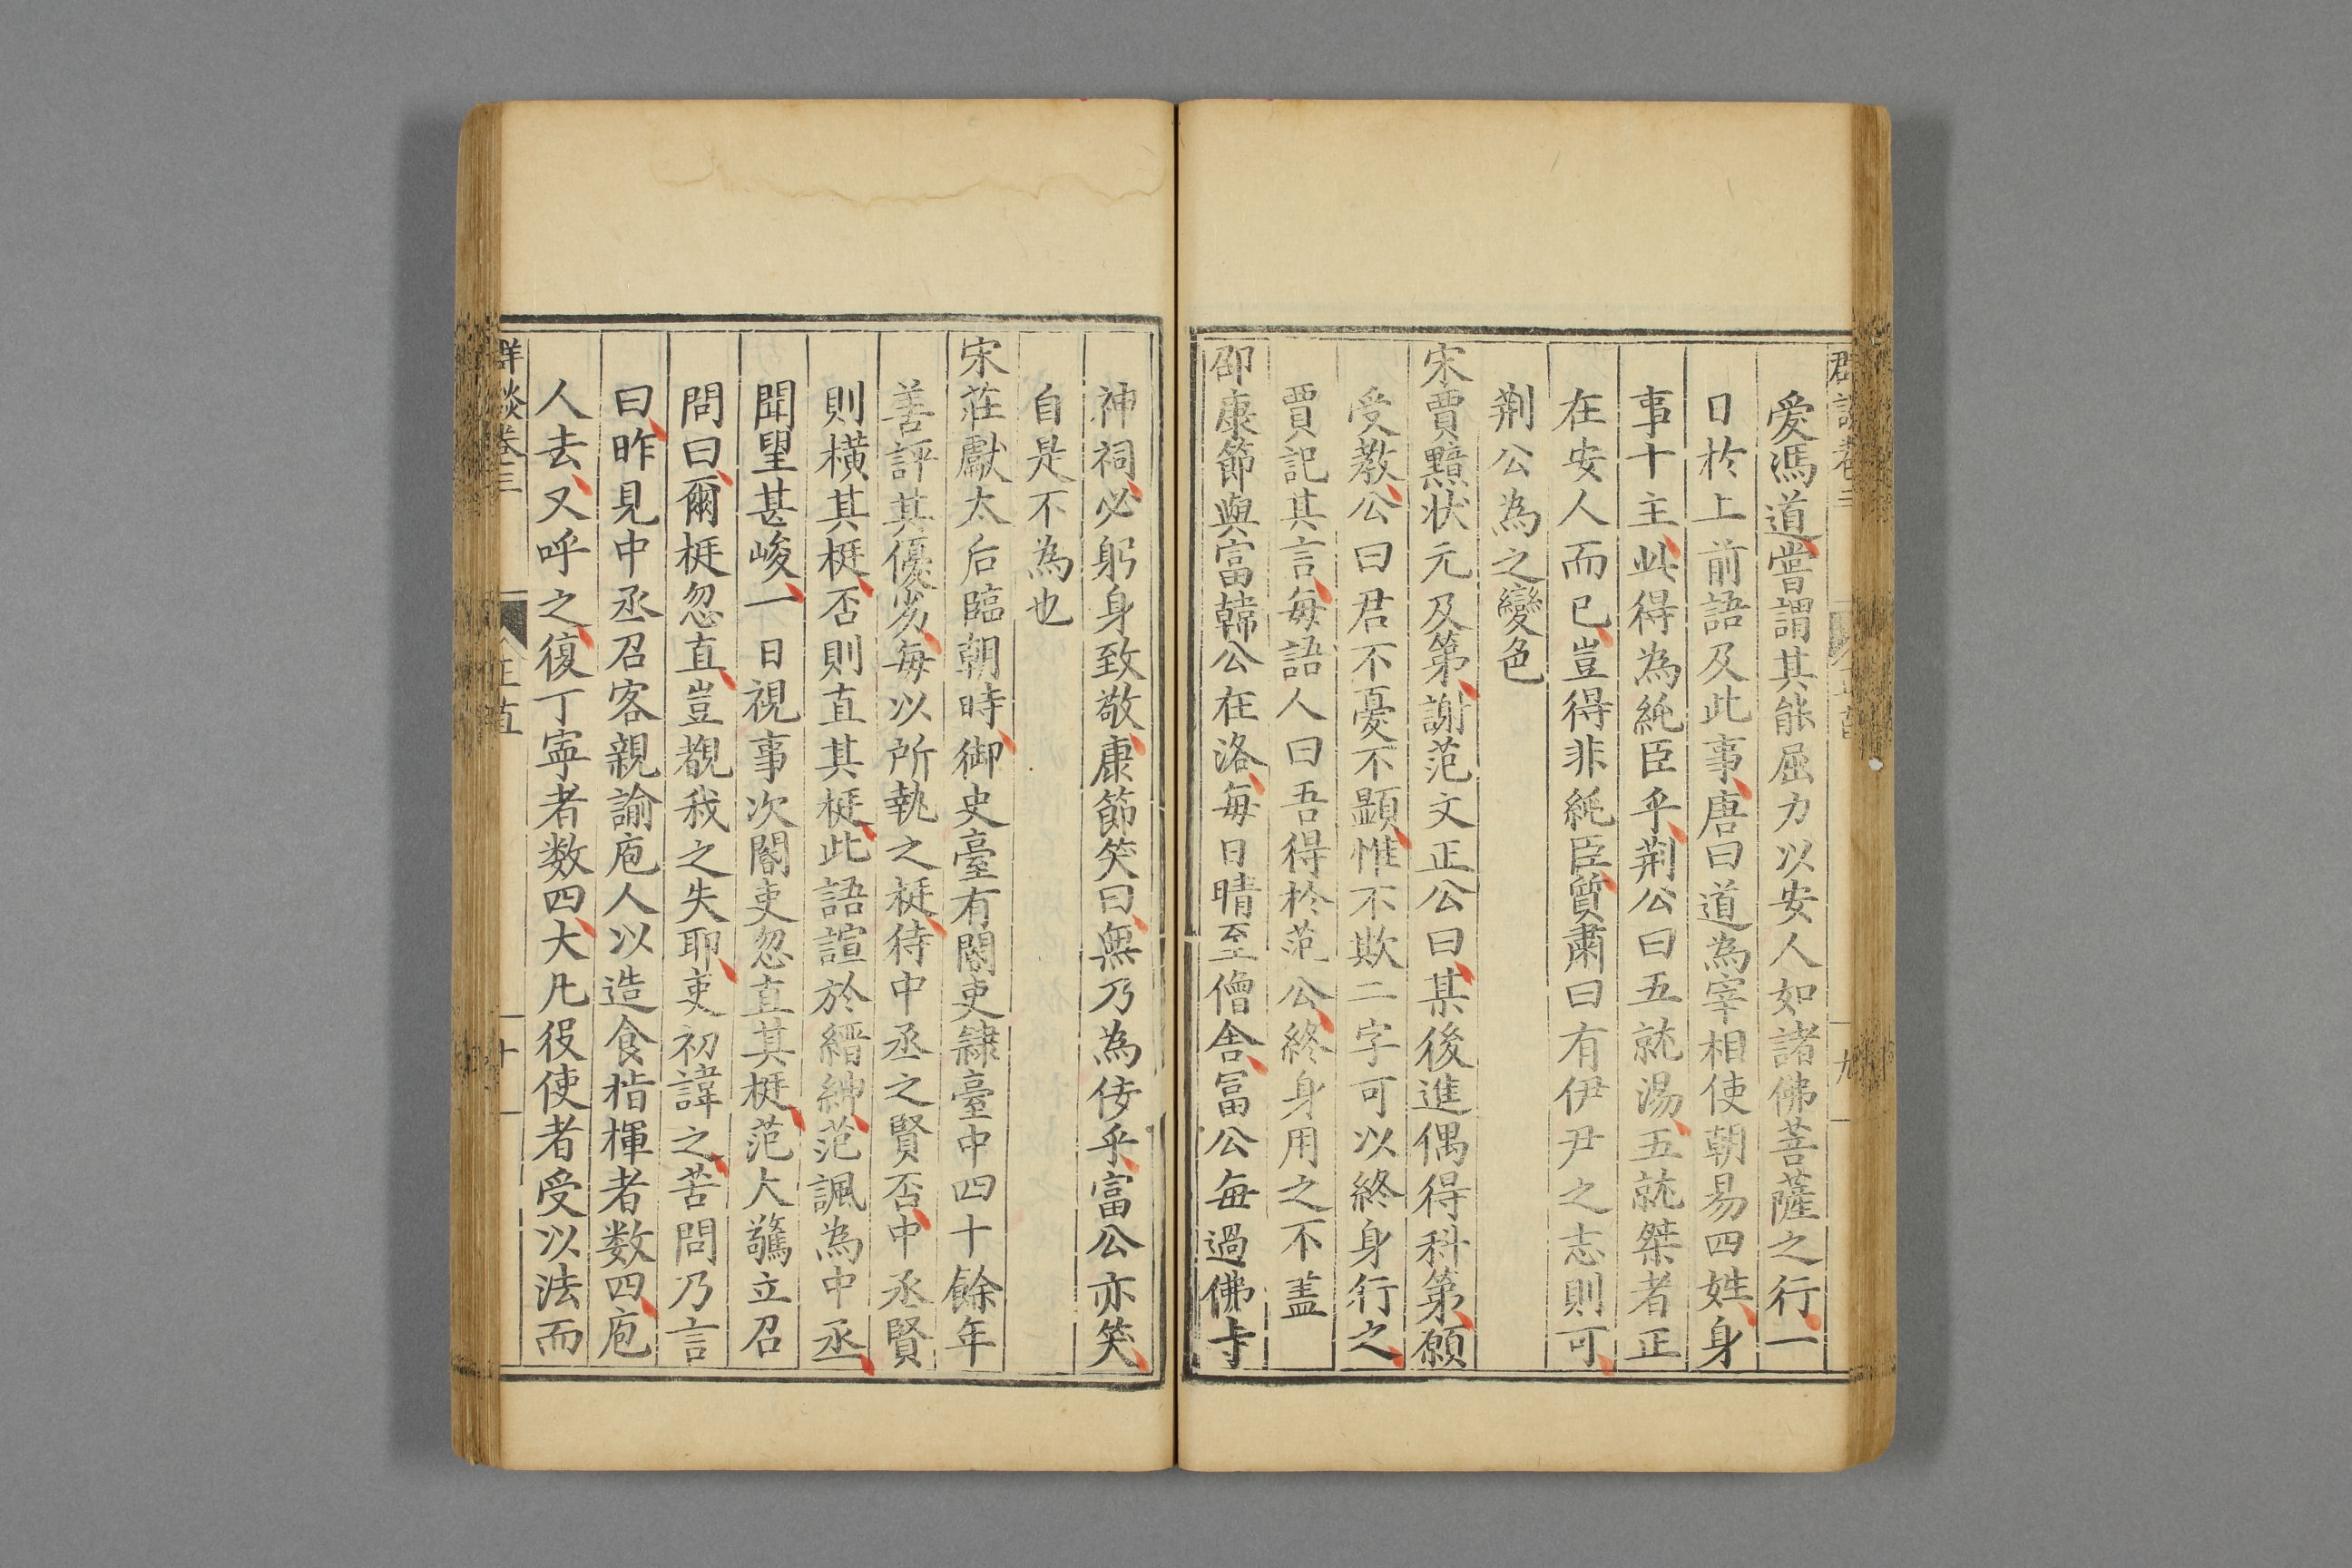 群談卷三
九
愛馮道嘗謂其能屈力以安人如諸佛菩薩之行一
日於上前語及此事唐曰道為宰相使朝易四姓身
事十主此得為純臣乎荆公曰五就湯五就桀者正
在安人而已豈得非純臣質肅曰有伊尹之志則可
荆公為之變色
宋賈黯状元及第謝范文正公曰某後進偶得科第願
受教公曰君不憂不顯惟不欺二字可以終身行之
賈記其言每語人曰吾得於范公終身用之不盖
邵康節與富韓公在洛每日晴至僧舍富公每過佛寺
神祠必躬身致敬康節笑曰無乃為侫乎富公亦笑
自是不為也
宋莊獻太后臨朝時御史臺有閽吏隷臺中四十餘年
善評其優劣每以所執之梃待中丞之賢否中丞賢
則橫其梃否則直其梃此語諠於縉紳范諷為中丞
聞望甚峻一日視事次閽吏忽直其梃范大驚立召
問曰爾梃忽直豈覩我之失耶吏初諱之苦問乃言
曰昨見中丞召客親諭庖人以造食指揮者数四庖
人去又呼之復丁寧者数四大凡役使者受以法而
群談卷三
正直
十